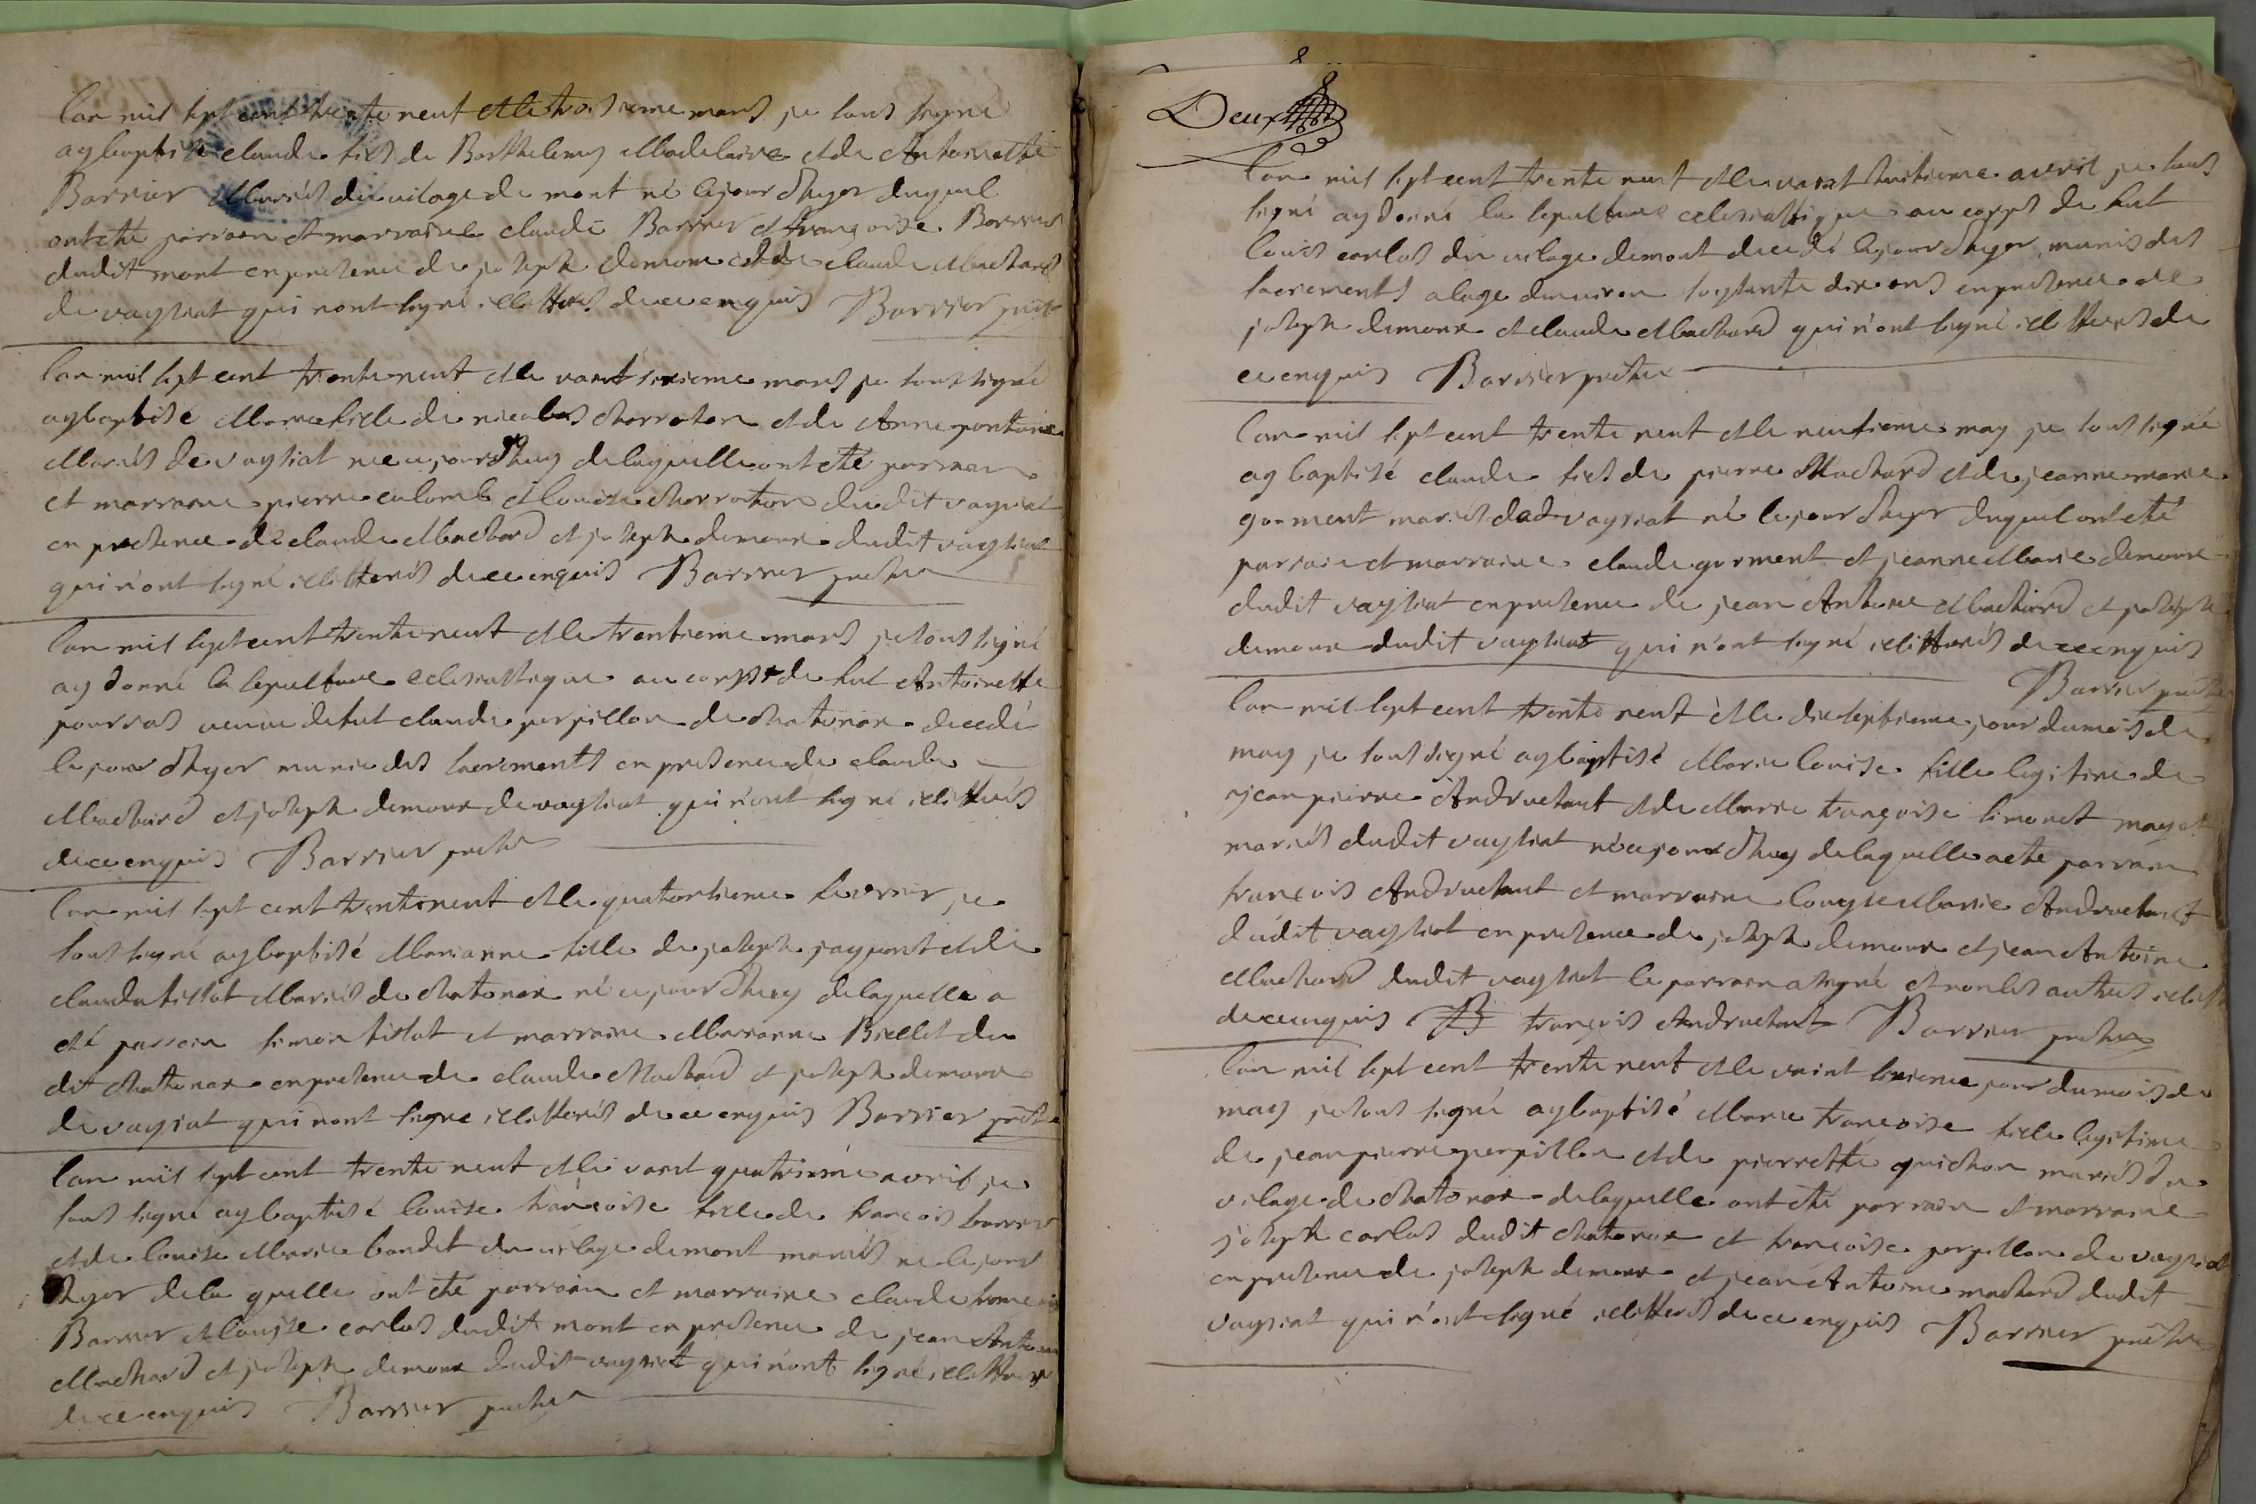 lan mil sept cent trente neuf et le troisieme mars je sous signé
ay baptisé claude fils de Barthelemy Madelaine et de Antoinette
Barrier Mariés du vilage de mont né le jour d'hyer duquel
ont eté parrain et marraine claude Barrier et françoise Barrier
dudit mont en presence de joseph demoux et de claude Machard
de vaysiat qui n'ont signé illitteres de ce enquis Barrier prêtre
lan mil sept cent trente neuf et le vaint sixieme mars je sous signé
ay baptisé Marie fille de nicolas Charraton et de Anne pontaine
Mariés de vaysiat née ce jourd'huy de laquelle ont eté parrain
et marraine pierre colomb et louise charraton dudit vaysiat
en presence de claude Machard et joseph demoux dudit vaysiat
qui n'ont signé illitterés de ce enquis Barrier pretre
lan mil sept cent trente neuf et le trentieme mars je sous signé
ay donné la sepulture eclesiastique au corps de fut Antoinette
pourvas veuve de fut claude perpillon de chatonax decedé
le jour d'hyer munie des sacrements en presence de claude
Machard et joseph demoux de vaysiat qui n'ont signé illitterés
de ce enquis Barrier pretre
lan mil sept cent trente neuf et le quatorsieme fevrier je
sous signé ay baptisé Marianne fille de joseph jaypont et de
clauda tissot Mariés de chatonax né ce jour d'huy de laquelle a
eté parrain simon tissot et marraine Marianne Biellet du
dit chatonax en presence de claude Machard et joseph demoux
de vaysiat qui n'ont signé illitterés de ce enquis Barrier prêtre
lan mil sept cent trente neuf et le vaint quatrieme avril je
sous signé ay baptisé louise françoise fille de françois barrier
et de louise Marie bondet du vilage de mont mariés né le jour
d'hyer de la quelle ont eté parrain et marraine claude françois
Barrier et louise carlos dudit mont en presence de jean Antoine
Machard et joseph demoux dudit vaysiat qui n'ont signé illitterés
de ce enquis Barrier pretre
Deux
lan mil sept cent trente neuf et le vaint huitieme avril je sous
signé ay donné la sepulture eclesiastique au corps de fut
louis carlos du vilage de mont decedé le jour d'hyer munis des
sacrements a lage d'environ soysante dix ans en presence de
joseph demoux et claude Machard qui n'ont signé illitterés de
ce enquis Barrier pretre
lan mil sept cent trente neuf et le neufieme may je sous signé
ay baptisé claude fils de pierre Machard et de jeanne marie
gorment mariés dud vaysiat né le jour d'hyer duquel ont eté
parrain et marraine claude gorment et jeanne Marie demoux
dudit vaysiat en presence de jean Antoine Machard et joseph
demoux dudit vaysiat qui n'ont signé illitterés de ce enquis
Barrier prêtre
lan mil sept cent trente neuf et le dixseptieme jour du mois de
may je sous signé ay baptisé Marie louise fille legitime de
jean pierre Andruetant et de Marie françoise simonet
mariés dudit vaysiat né ce jour d'huy de laquelle a eté parrain
françois Andruetant et marraine louyse Marie Andruetant
dudit vaysiat en presence de joseph demoux et jean Antoine
Machard dudit vaysiat le parrain a signé et non les autres
de ce enquis françois Andruetant Barrier pretre
lan mil sept cent trente neuf et le vaint sixieme jour du mois de
may je sous signé ay baptisé Marie françoise fille legitime
de jean pierre perpillon et de pierrette guichon mariés du
vilage de chatonax de laquelle ont eté parrain et marraine
joseph carlos dudit chatonax et françoise perpillon de vaysiat
en presence de joseph demoux et jean Antoine machard dudit
vaysiat qui n'ont signé illitterés de ce enquis Barrier prêtre